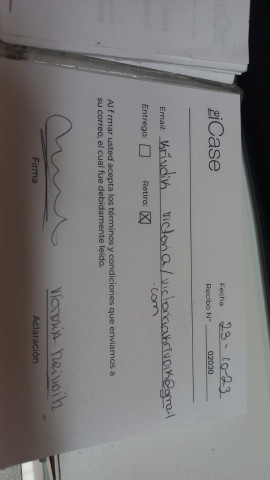 iCase
Fecha 23-10-23
Recibo N° 02030
Email: Krivdik Victoria / victoriakrivdik@gmail
.com
Entrego: Retiro: X
Al firmar usted acepta los términos y condiciones que enviamos a
su correo, el cual fue debidamente leído.
Victoria Krivdik
Firma Aclaración